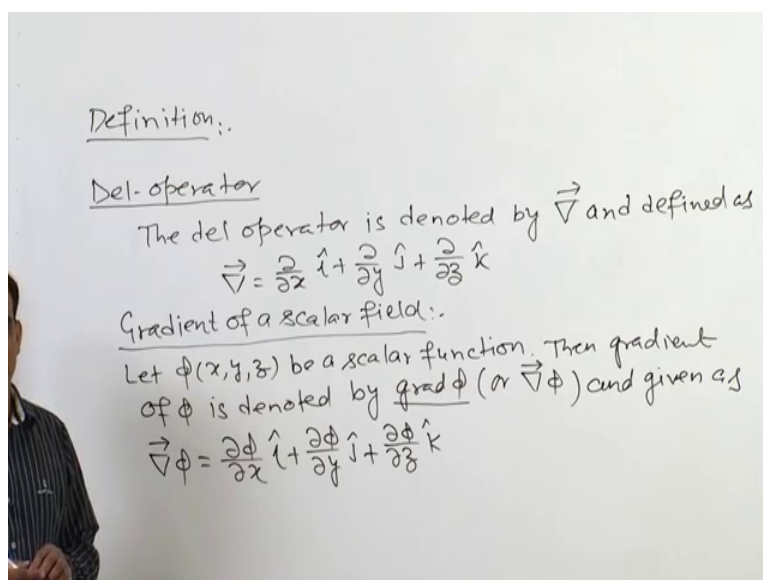 Definition:.
Del-operator
The del operator is denoted by ∇⃗ and defined as
∇⃗ = ∂/∂x î + ∂/∂y ĵ + ∂/∂z k̂
Gradient of a scalar field:.
Let ϕ(x,y,z) be a scalar function. Then gradient
of ϕ is denoted by grad ϕ (or ∇⃗ϕ) and given as
∇⃗ϕ = ∂ϕ/∂x î + ∂ϕ/∂y ĵ + ∂ϕ/∂z k̂